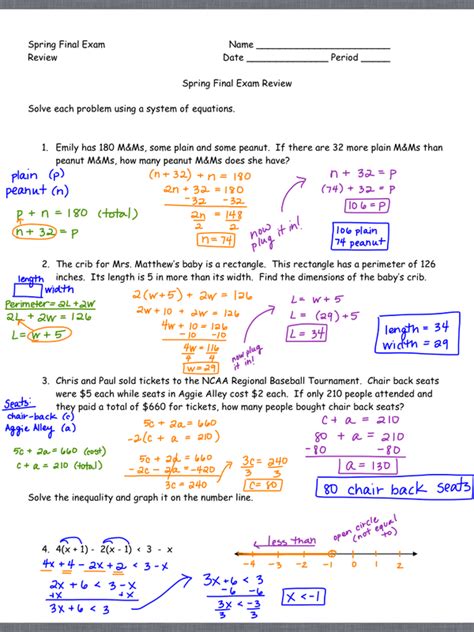 Spring Final Exam Name ____________________
Review Date ______________ Period _____
Spring Final Exam Review
Solve each problem using a system of equations.
1. Emily has 180 M&Ms, some plain and some peanut. If there are 32 more plain M&Ms than
peanut M&Ms, how many peanut M&Ms does she have?
plain (p)
peanut (n)
p + n = 180 (total)
n + 32 = p
(n + 32) + n = 180
2n + 32 = 180
- 32 - 32
2n = 148
2 2
n = 74
now plug it in!
n + 32 = p
(74) + 32 = p
106 = p
106 plain
74 peanut
2. The crib for Mrs. Matthew's baby is a rectangle. This rectangle has a perimeter of 126
inches. Its length is 5 in more than its width. Find the dimensions of the baby's crib.
length
width
Perimeter = 2L + 2W
2L + 2w = 126
L = w + 5
2(w + 5) + 2w = 126
2w + 10 + 2w = 126
4w + 10 = 126
- 10 - 10
4w = 116
4 4
w = 29
now plug it in!
L = w + 5
L = (29) + 5
L = 34
length = 34
width = 29
3. Chris and Paul sold tickets to the NCAA Regional Baseball Tournament. Chair back seats
were $5 each while seats in Aggie Alley cost $2 each. If only 210 people attended and
they paid a total of $660 for tickets, how many people bought chair back seats?
Seats:
chair-back (c)
Aggie Alley (a)
5c + 2a = 660 (cost)
c + a = 210 (total)
5c + 2a = 660
-2(c + a = 210)
5c + 2a = 660
-2c - 2a = -420
3c = 240
3c = 240
3 3
c = 80
c + a = 210
80 + a = 210
- 80 - 80
a = 130
80 chair back seats
Solve the inequality and graph it on the number line.
4. 4(x + 1) - 2(x - 1) < 3 - x
4x + 4 - 2x + 2 < 3 - x
2x + 6 < 3 - x
+ x + x
3x + 6 < 3
3x + 6 < 3
- 6 - 6
3x < -3
3 3
x < -1
less than
open circle
(not equal
to)
-4 -3 -2 -1 0 1 2